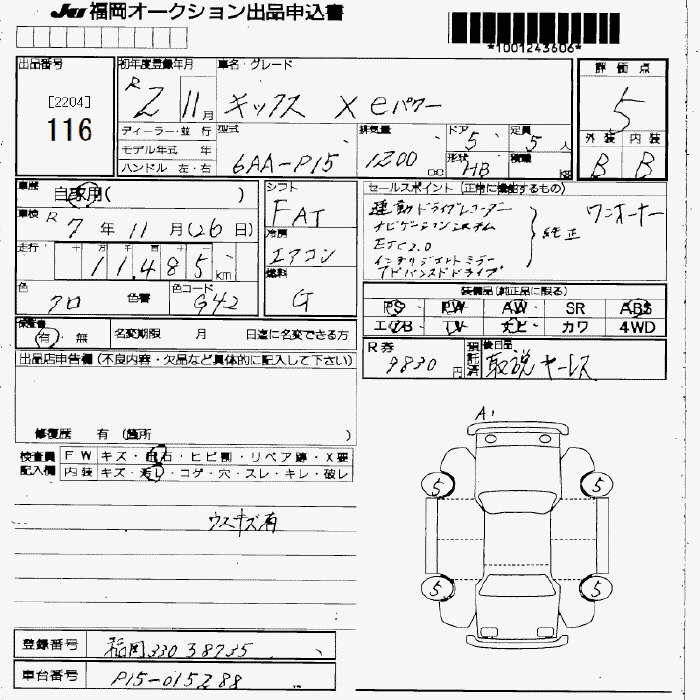 JU 福岡オークション出品申込書
*1001243606*
出品番号 初年度登録年月 車名・グレード 評価点
[2204]
116
R 2 11月 キックス X eパワー 5
ディーラー・並行 型式 排気量 ドア 定員 外装 内装
モデル年式 年 5 5人
ハンドル 左・右 6AA-P15 1200 cc 形状 HB 積載 kg B B
車歴 自家用( ) シフト セールスポイント(正常に機能するもの)
FAT 連動ドライブレコーダー ワンオーナー
車検 R 7年 11月(26日) ナビゲーションシステム
冷房 ETC2.0 純正
走行 十万千百十 エアコン インテリジェントミラー
11,485 km アドバンスドドライブ
燃料
色 色替 色コード G 装備品(純正品に限る)
クロ G42 PS PW AW SR ABS
エアB TV ナビ カワ 4WD
保証書 有・無 名変期限 月 日迄に名変できる方
R券 9830円 預託済 後日品 取説 ナーレス
出品店申告欄(不良内容・欠品など具体的に記入して下さい)
修復歴 有 (箇所 )
A1
検査員 FW キズ・飛石・ヒビ割・リペア跡・X要
記入欄 内装 キズ・汚れ・コゲ・穴・スレ・キレ・破レ
5 5
ウスキズ有
5 5
登録番号 福岡330 38735
車台番号 P15-015288